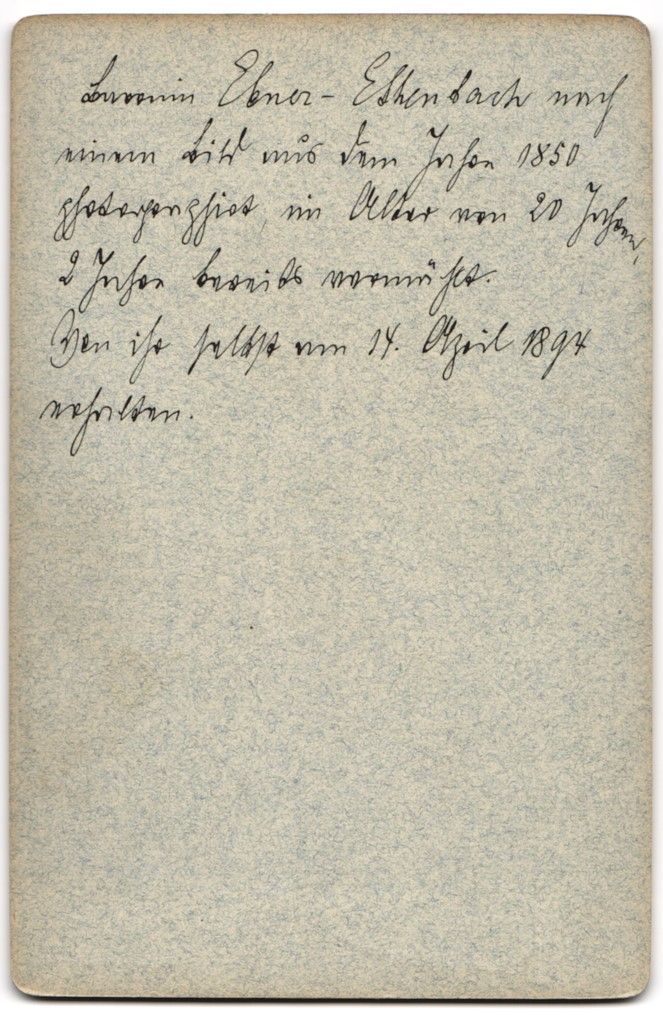 Baronin Ebner-Eschenbach nach
einem Bild aus dem Jahre 1850
photographirt, im Alter von 20 Jahren,
2 Jahre bereits vermählt.
Von ihr selbst am 14. April 1894
erhalten.